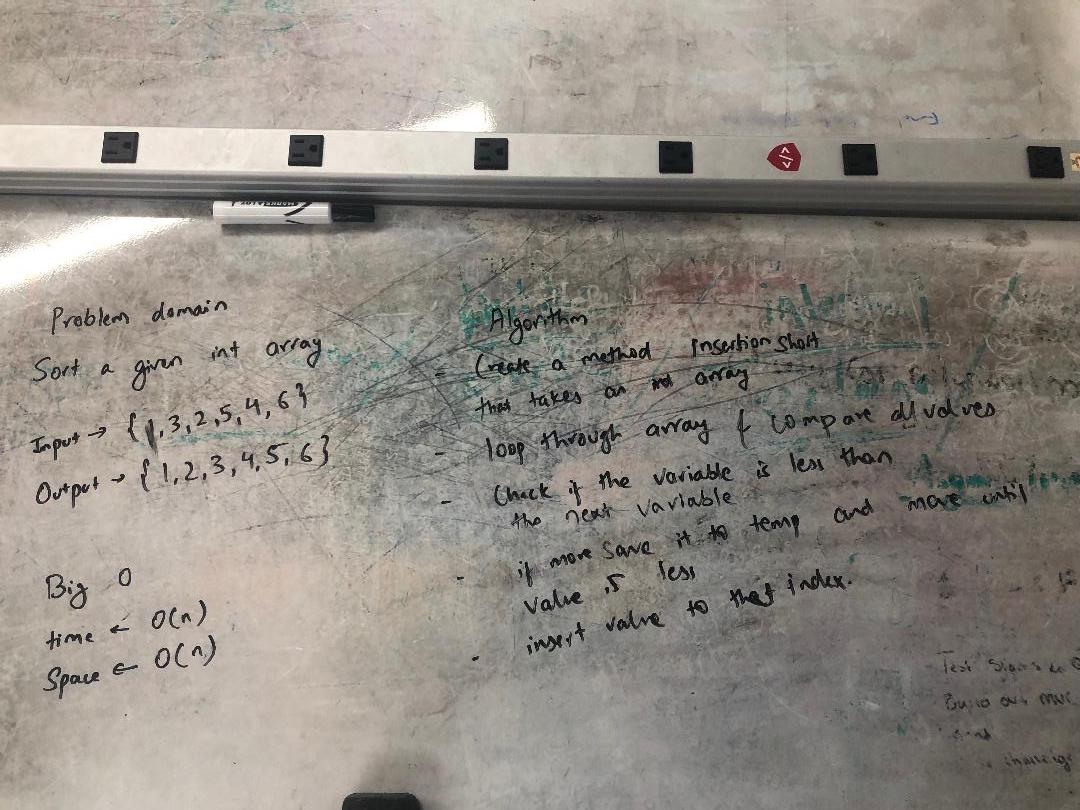 Problem domain
Sort a given int array
Input → {1,3,2,5,4,6}
Output → {1,2,3,4,5,6}
Big O
time ← O(n)
Space ← O(n)
Algorithm
- Create a method insertion short
that takes an int array
- loop through array & compare all values
- Check if the variable is less than
the next variable
- if more save it to temp and move until
value is less
- insert value to that index.